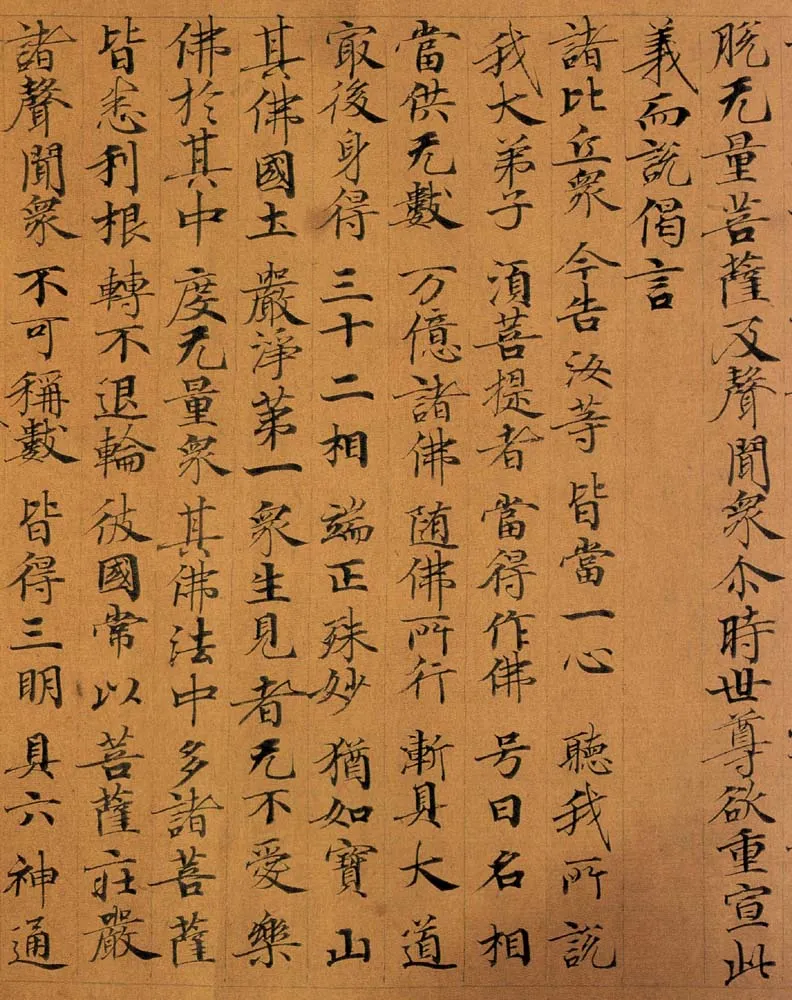 脱无量菩薩及聲聞衆尒時世尊欲重宣此
義而説偈言
諸比丘衆 今告汝等 皆當一心 聽我所説
我大弟子 湏菩提者 當得作佛 号曰名相
當供无數 万億諸佛 随佛所行 漸具大道
㝡後身得 三十二相 端正殊妙 猶如寶山
其佛國土 嚴淨苐一 衆生見者 无不愛樂
佛於其中 度无量衆 其佛法中 多諸菩薩
皆悉利根 轉不退輪 彼國常以 菩薩莊嚴
諸聲聞衆 不可稱數 皆得三明 具六神通